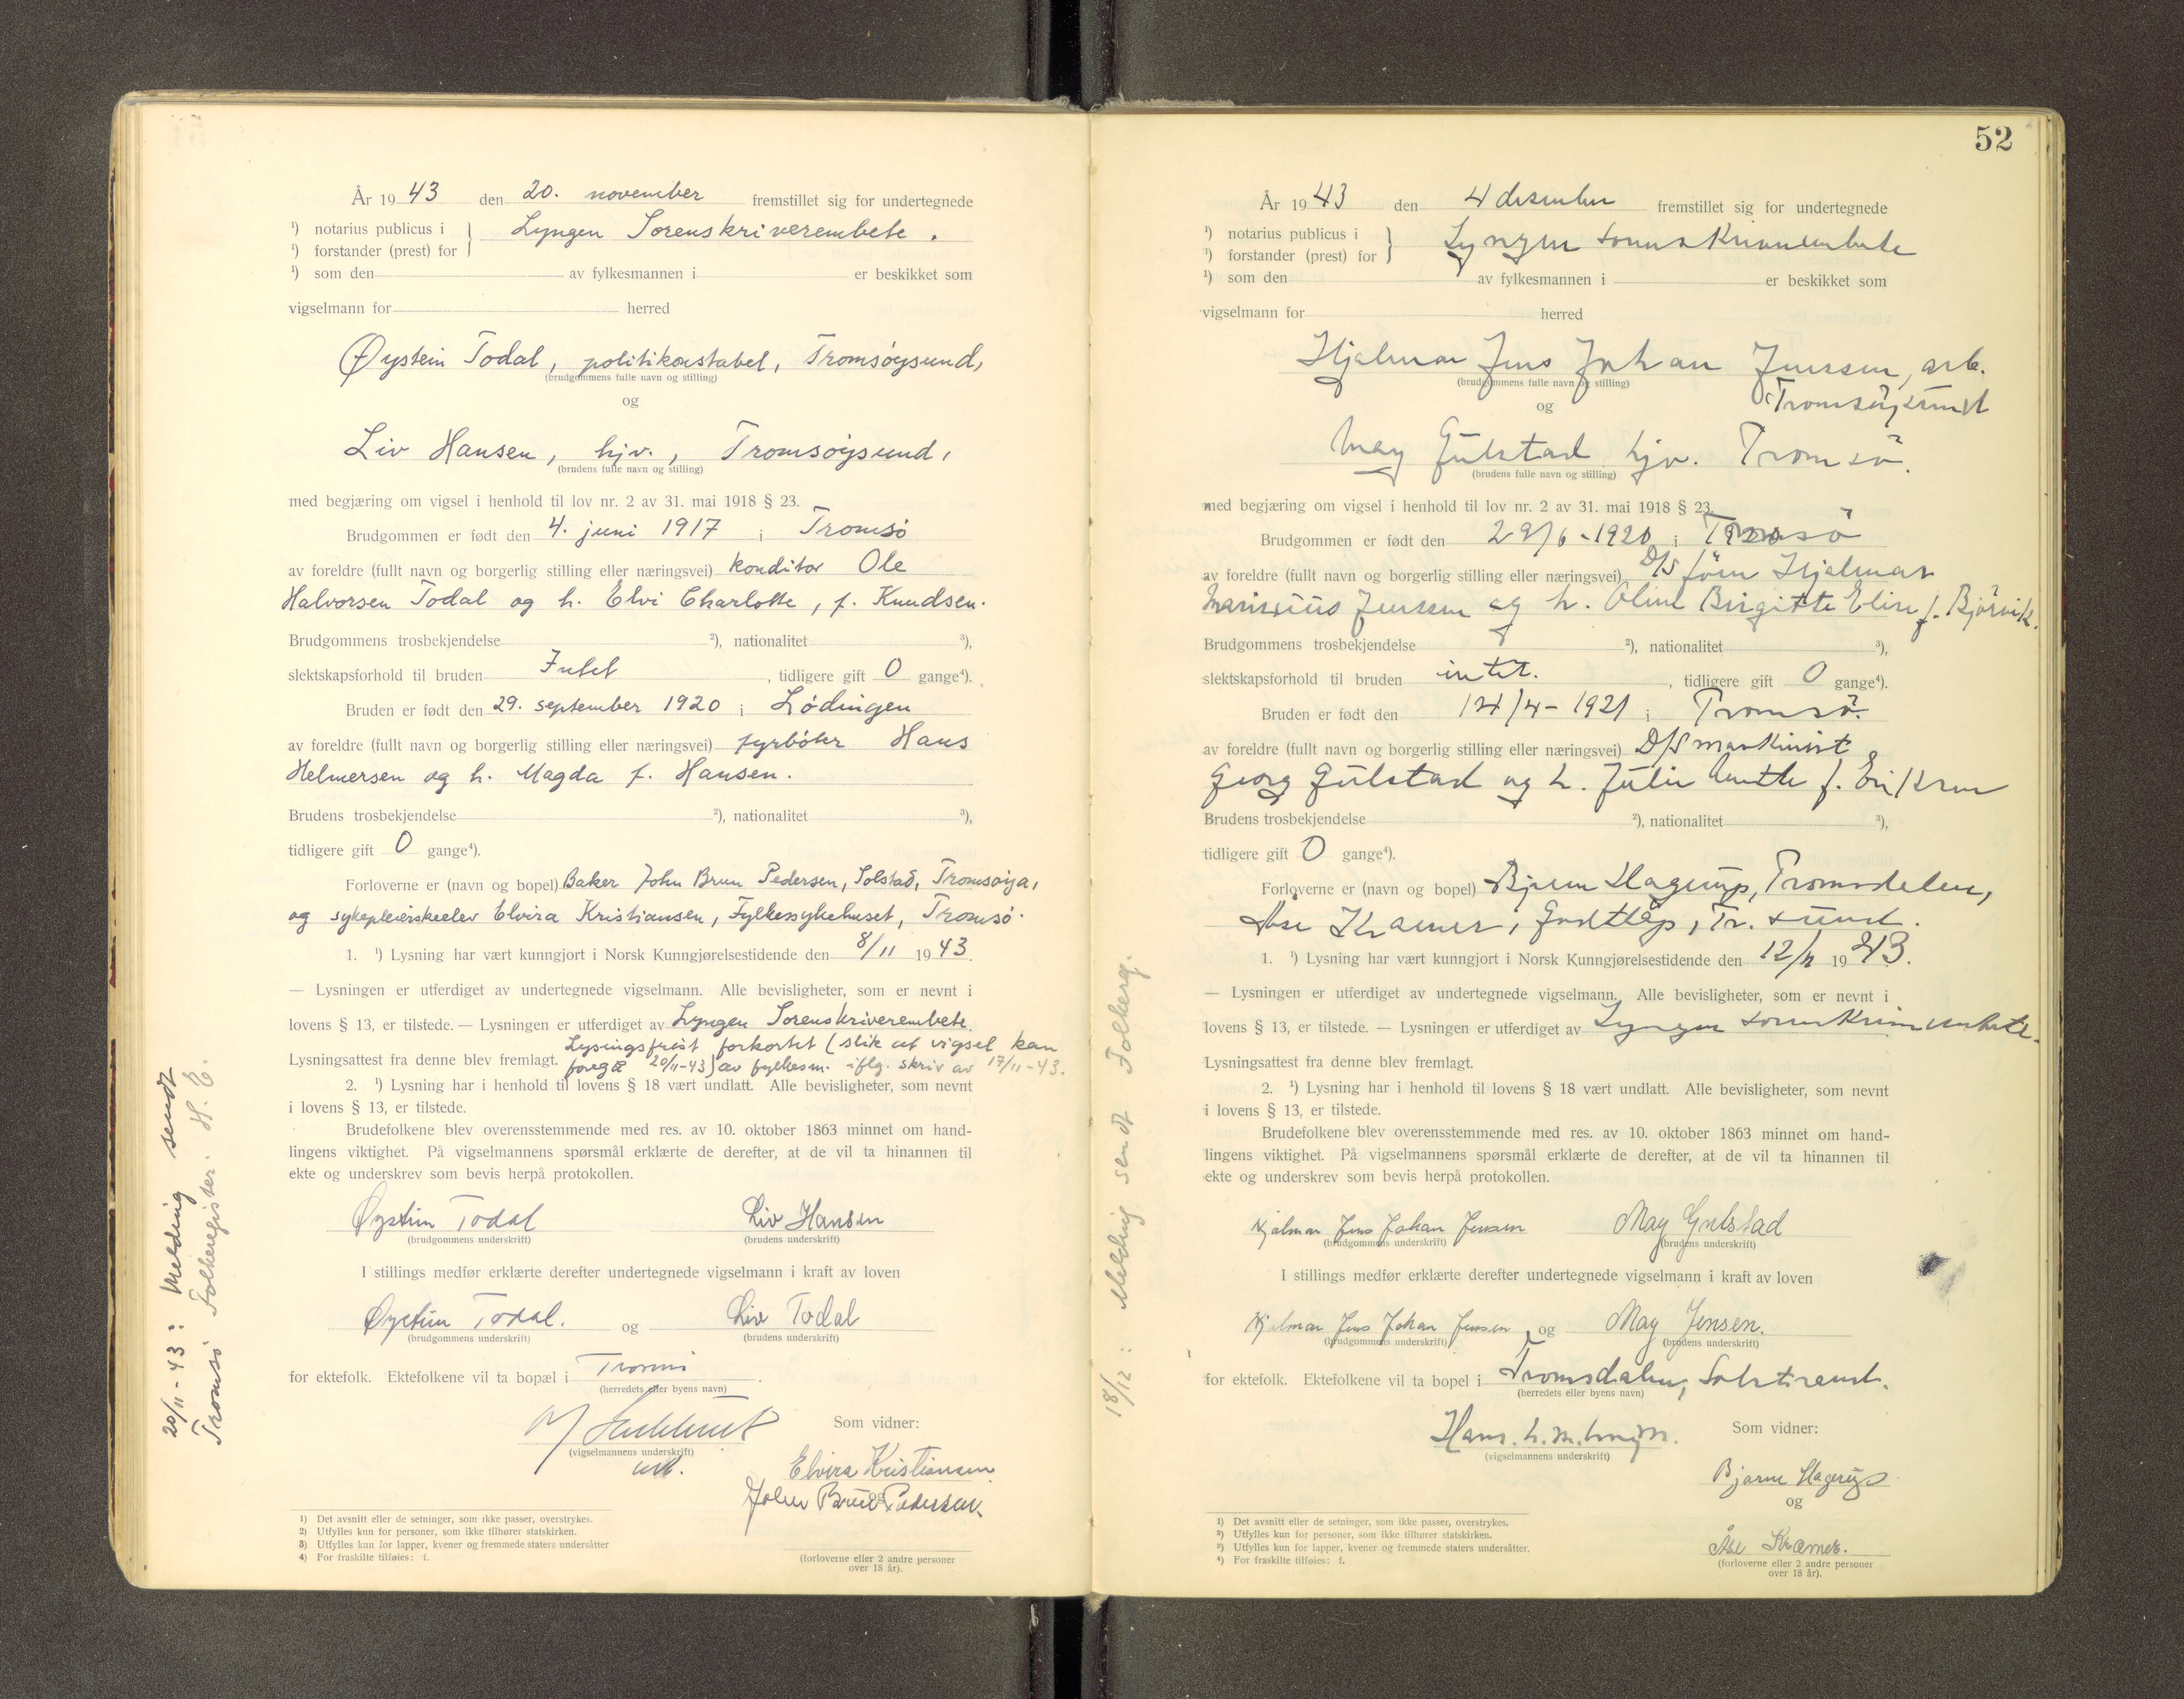 År 1943 den 20. november fremstillet sig for undertegnede
¹) notarius publicus i } Lyngen Sorenskriverembete.
¹) forstander (prest) for
¹) som den av fylkesmannen i er beskikket som
vigselmann for herred
Øystein Todal, politikonstabel, Tromsøysund,
(brudgommens fulle navn og stilling)
og
Liv Hansen, hjv., Tromsøysund,
(brudens fulle navn og stilling)
med begjæring om vigsel i henhold til lov nr. 2 av 31. mai 1918 § 23.
Brudgommen er født den 4. juni 1917 i Tromsö
av foreldre (fullt navn og borgerlig stilling eller næringsvei) konditor Ole
Halvorsen Todal og h. Elvi Charlotte, f. Knudsen.
Brudgommens trosbekjendelse ²), nationalitet ³),
slektskapsforhold til bruden Intet, tidligere gift 0 gange⁴).
Bruden er født den 29. september 1920 i Lødingen
av foreldre (fullt navn og borgerlig stilling eller næringsvei) fyrböter Hans
Helmersen og h. Magda f. Hansen.
Brudens trosbekjendelse ²), nationalitet ³),
tidligere gift 0 gange⁴).
Forloverne er (navn og bopel) Baker John Brun Pedersen, Solstad, Tromsøya,
og sykepleierskeelev Elvira Kristiansen, Fylkessykehuset, Tromsö.
1. ¹) Lysning har vært kunngjort i Norsk Kunngjørelsestidende den 8/11 1943.
— Lysningen er utferdiget av undertegnede vigselmann. Alle bevisligheter, som er nevnt i
lovens § 13, er tilstede. — Lysningen er utferdiget av Lyngen Sorenskriverembete.
Lysingsfrist forkortet (slik at vigsel kan
Lysningsattest fra denne blev fremlagt. foregå 20/11-43) av fylkesm. iflg. skriv av 17/11-43.
2. ¹) Lysning har i henhold til lovens § 18 vært undlatt. Alle bevisligheter, som nevnt
i lovens § 13, er tilstede.
Brudefolkene blev overensstemmende med res. av 10. oktober 1863 minnet om hand-
lingens viktighet. På vigselmannens spørsmål erklærte de derefter, at de vil ta hinannen til
ekte og underskrev som bevis herpå protokollen.
Øystein Todal Liv Hansen
(brudgommens underskrift) (brudens underskrift)
I stillings medfør erklærte derefter undertegnede vigselmann i kraft av loven
Øystein Todal. og Liv Todal
(brudgommens underskrift) (brudens underskrift)
for ektefolk. Ektefolkene vil ta bopæl i Tromsö.
(herredets eller byens navn)
Som vidner:
(vigselmannens underskrift)
Elvira Kristiansen
og
John Brun Pedersen.
(forloverne eller 2 andre personer
over 18 år).
1) Det avsnitt eller de setninger, som ikke passer, overstrykes.
2) Utfylles kun for personer, som ikke tilhører statskirken.
3) Utfylles kun for lapper, kvener og fremmede staters undersåtter
4) For fraskilte tilføies: f.
20/11-43: Melding sendt
Tromsö Folkeregister. H. E.
52
År 1943 den 4 desember fremstillet sig for undertegnede
¹) notarius publicus i } Lyngen sorenskriverembete
¹) forstander (prest) for
¹) som den av fylkesmannen i er beskikket som
vigselmann for herred
Hjalmar Jens Johan Jenssen, arb.
Tromsöysund
(brudgommens fulle navn og stilling)
og
May Gulstad hjv. Tromsö.
(brudens fulle navn og stilling)
med begjæring om vigsel i henhold til lov nr. 2 av 31. mai 1918 § 23.
Brudgommen er født den 29/6-1920 i Tromsö
av foreldre (fullt navn og borgerlig stilling eller næringsvei) D/S Hjalmar
Jenssen og h. Oline Birgitte Elise f. Bjørvik.
Brudgommens trosbekjendelse ²), nationalitet ³),
slektskapsforhold til bruden intet., tidligere gift 0 gange⁴).
Bruden er født den 14/4-1921 i Tromsö.
av foreldre (fullt navn og borgerlig stilling eller næringsvei) D/S maskinist
Georg Gulstad og h. Julie f. Eriksen
Brudens trosbekjendelse ²), nationalitet ³),
tidligere gift 0 gange⁴).
Forloverne er (navn og bopel) Bjarne Hagerup, Tromsdalen,
Åse Kræmer, Tr. sund.
1. ¹) Lysning har vært kunngjort i Norsk Kunngjørelsestidende den 12/11 1943.
— Lysningen er utferdiget av undertegnede vigselmann. Alle bevisligheter, som er nevnt i
lovens § 13, er tilstede. — Lysningen er utferdiget av Lyngen sorenskriverembete.
Lysningsattest fra denne blev fremlagt.
2. ¹) Lysning har i henhold til lovens § 18 vært undlatt. Alle bevisligheter, som nevnt
i lovens § 13, er tilstede.
Brudefolkene blev overensstemmende med res. av 10. oktober 1863 minnet om hand-
lingens viktighet. På vigselmannens spørsmål erklærte de derefter, at de vil ta hinannen til
ekte og underskrev som bevis herpå protokollen.
Hjalmar Jens Johan Jensen May Gulstad
(brudgommens underskrift) (brudens underskrift)
I stillings medfør erklærte derefter undertegnede vigselmann i kraft av loven
Hjalmar Jens Johan Jensen og May Jensen.
(brudgommens underskrift) (brudens underskrift)
for ektefolk. Ektefolkene vil ta bopel i Tromsdalen,
(herredets eller byens navn)
Hans. Som vidner:
(vigselmannens underskrift)
Bjarne Hagerup
og
Åse Kræmer.
(forloverne eller 2 andre personer
over 18 år).
1) Det avsnitt eller de setninger, som ikke passer, overstrykes.
2) Utfylles kun for personer, som ikke tilhører statskirken.
3) Utfylles kun for lapper, kvener og fremmede staters undersåtter.
4) For fraskilte tilføies: f.
18/12: Melding sendt Folkereg.